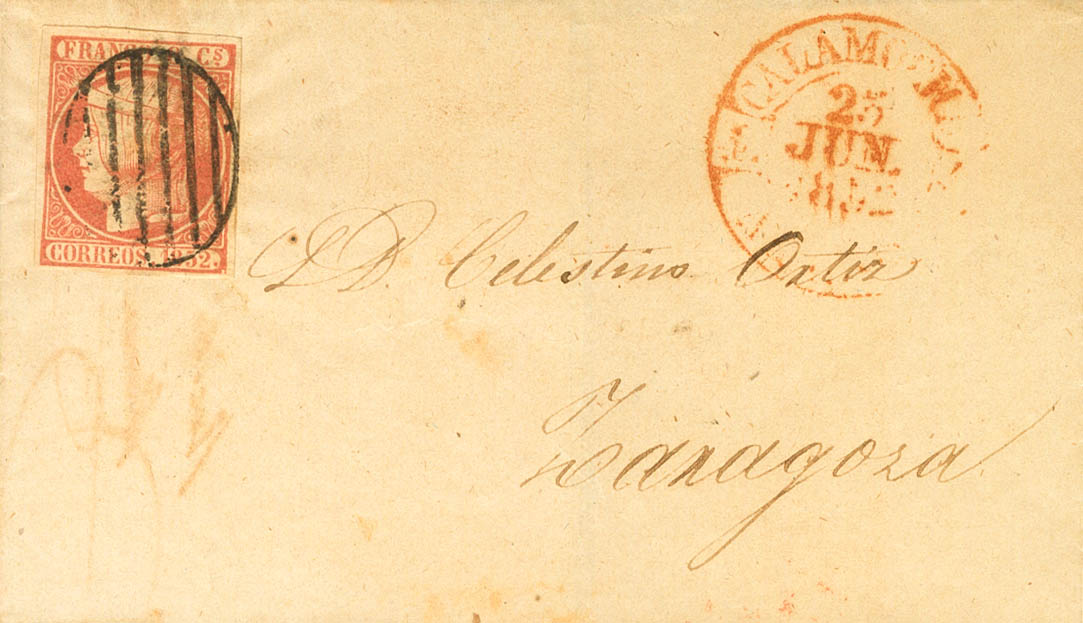 FRANCO 6 Cs
CORREOS. 1852.
CALAMOCHA
25
JUN.
1852
D. D. Celestino Ortiz
Zaragoza